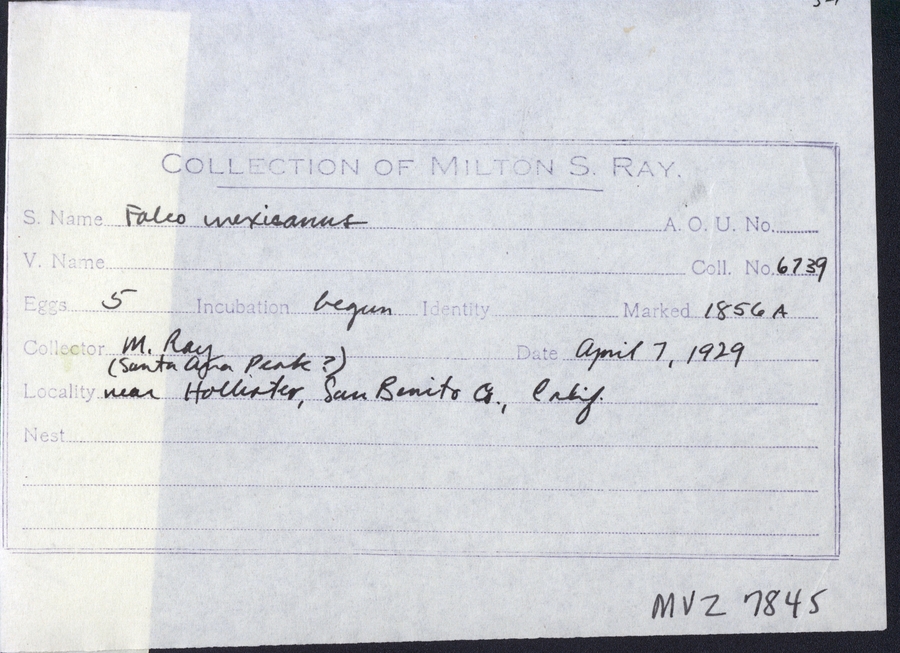 COLLECTION OF MILTON S. RAY.
S. Name Falco mexicanus A. O. U. No.
V. Name Coll. No. 6739
Eggs 5 Incubation begun Identity Marked 1856 A
Collector M. Ray Date April 7, 1929
(Santa Ana Peak ?)
Locality near Hollister, San Benito Co., Calif.
Nest
MVZ 7845